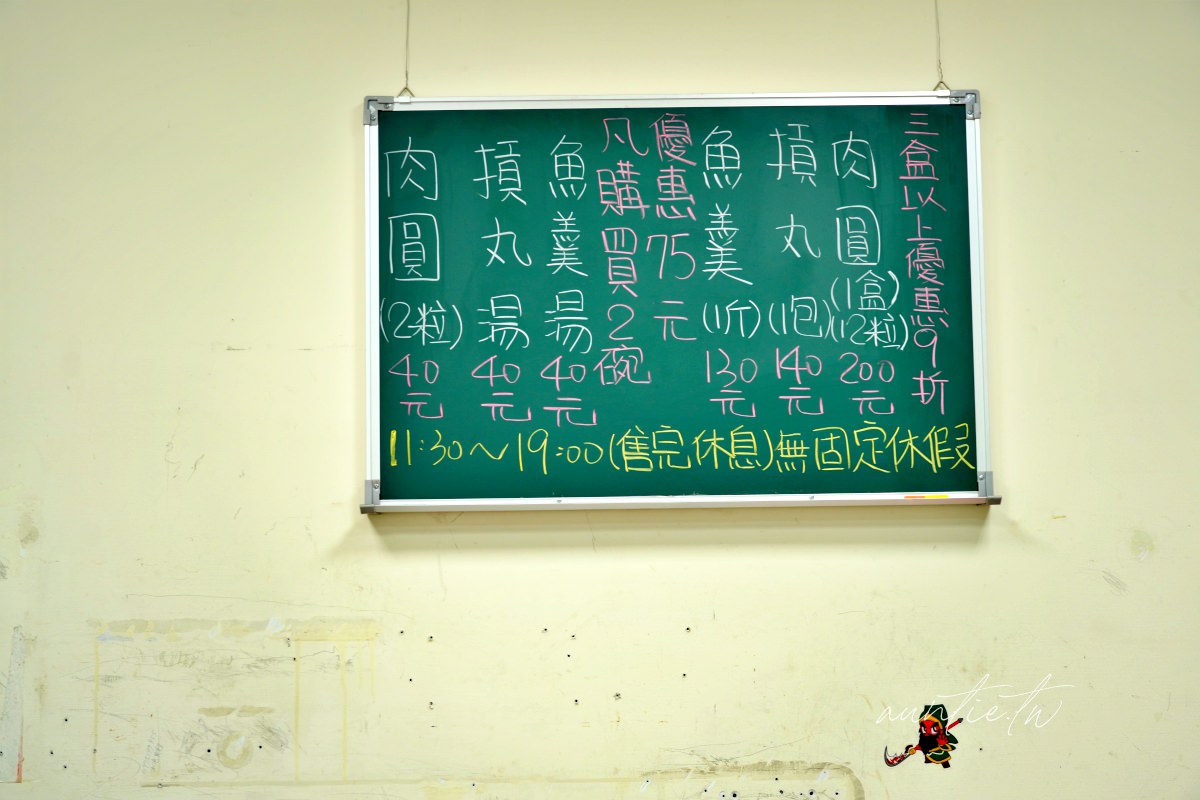 肉圓(2粒)40元
摃丸湯40元
魚羹湯40元
凡購買2碗
優惠75元
魚羹(1斤)130元
摃丸(1包)140元
肉圓(1盒)(12粒)200元
三盒以上優惠9折
11:30~19:00(售完休息)無固定休假
auntie.tw